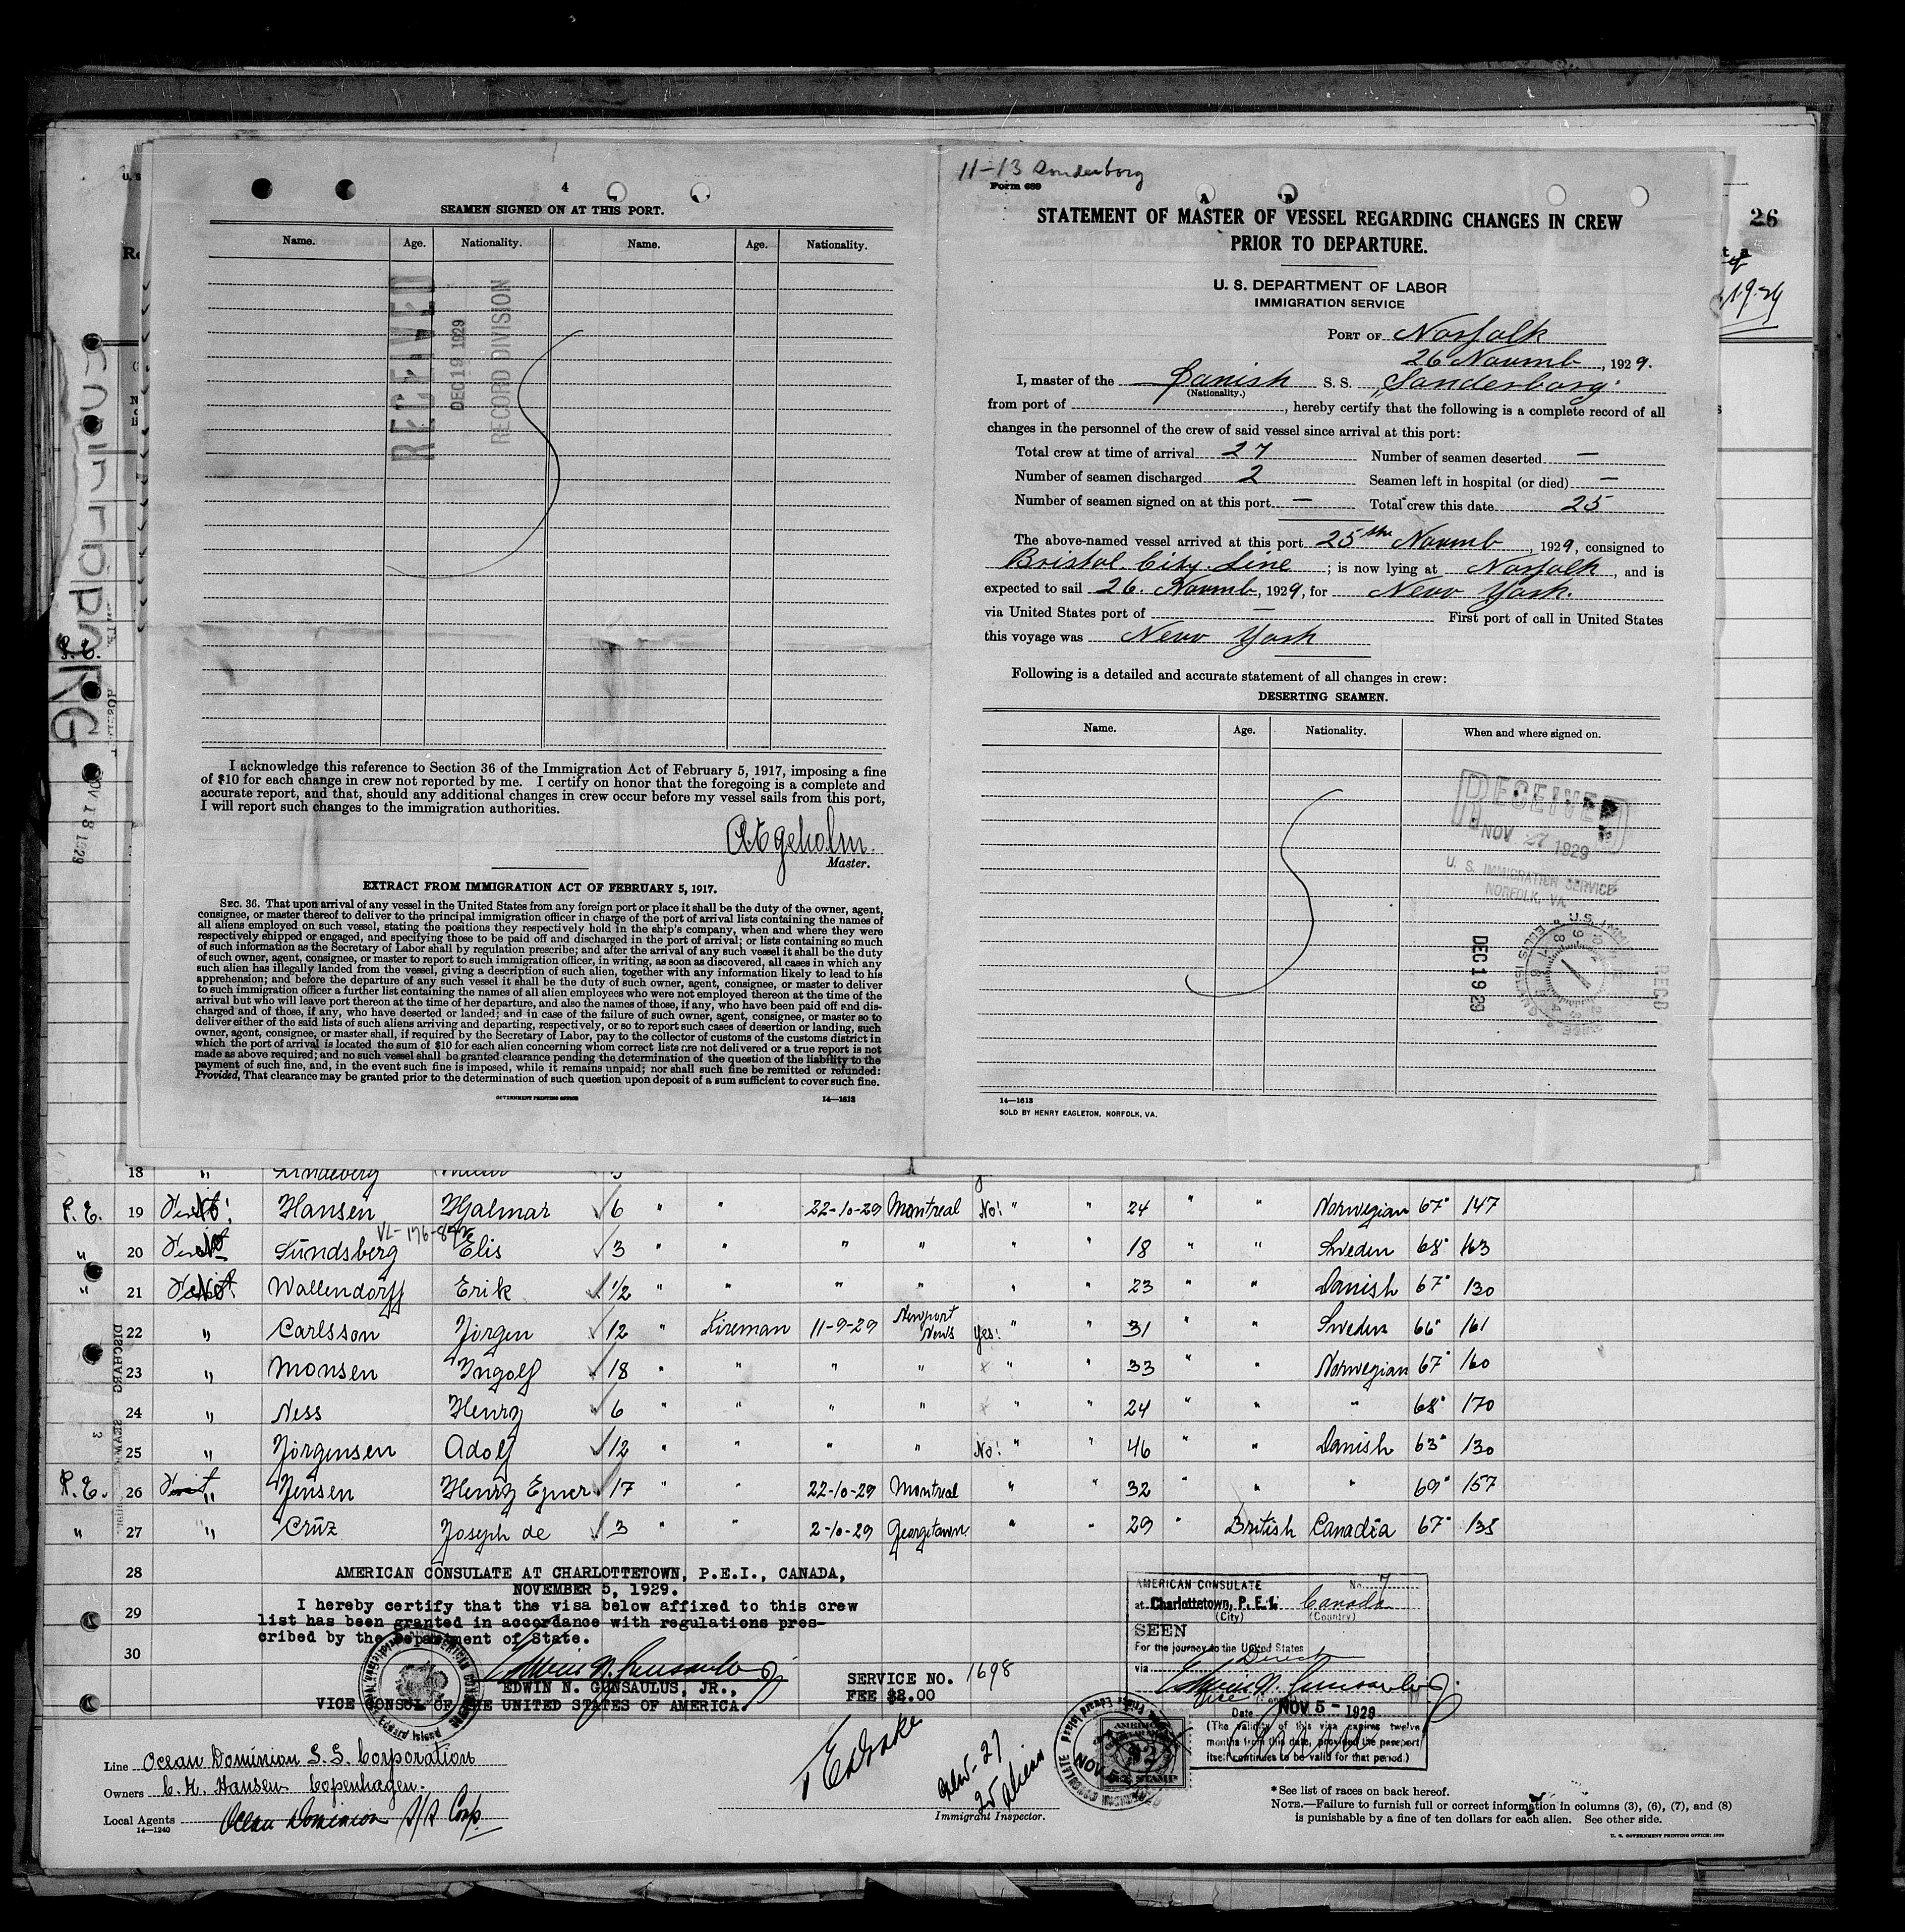 4
SEAMEN SIGNED ON AT THIS PORT.
Name. Age. Nationality. Name. Age. Nationality.
RECEIVED
DEC 19 1929
RECORD DIVISION
I acknowledge this reference to Section 36 of the Immigration Act of February 5, 1917, imposing a fine
of $10 for each change in crew not reported by me. I certify on honor that the foregoing is a complete and
accurate report, and that, should any additional changes in crew occur before my vessel sails from this port,
I will report such changes to the immigration authorities.
Master.
EXTRACT FROM IMMIGRATION ACT OF FEBRUARY 5, 1917.
SEC. 36. That upon arrival of any vessel in the United States from any foreign port or place it shall be the duty of the owner, agent,
consignee, or master thereof to deliver to the principal immigration officer in charge of the port of arrival lists containing the names of
all aliens employed on such vessel, stating the positions they respectively hold in the ship's company, when and where they were
respectively shipped or engaged, and specifying those to be paid off and discharged in the port of arrival; or lists containing so much
of such information as the Secretary of Labor shall by regulation prescribe; and after the arrival of any such vessel it shall be the duty
of such owner, agent, consignee, or master to report to such immigration officer, in writing, as soon as discovered, all cases in which any
such alien has illegally landed from the vessel, giving a description of such alien, together with any information likely to lead to his
apprehension; and before the departure of any such vessel it shall be the duty of such owner, agent, consignee, or master to deliver
to such immigration officer a further list containing the names of all alien employees who were not employed thereon at the time of the
arrival but who will leave port thereon at the time of her departure, and also the names of those, if any, who have been paid off and dis-
charged and of those, if any, who have deserted or landed; and in case of the failure of such owner, agent, consignee, or master so to
deliver either of the said lists of such aliens arriving and departing, respectively, or so to report such cases of desertion or landing, such
owner, agent, consignee, or master shall, if required by the Secretary of Labor, pay to the collector of customs of the customs district in
which the port of arrival is located the sum of $10 for each alien concerning whom correct lists are not delivered or a true report is not
made as above required; and no such vessel shall be granted clearance pending the determination of the question of the liability to the
payment of such fine, and, in the event such fine is imposed, while it remains unpaid; nor shall such fine be remitted or refunded:
Provided, That clearance may be granted prior to the determination of such question upon deposit of a sum sufficient to cover such fine.
GOVERNMENT PRINTING OFFICE 14—1613
11-13 Sonderborg
Form 689
STATEMENT OF MASTER OF VESSEL REGARDING CHANGES IN CREW
PRIOR TO DEPARTURE.
U. S. DEPARTMENT OF LABOR
IMMIGRATION SERVICE
PORT OF Norfolk
26 Novmb, 1929.
I, master of the Danish S. S. "Sonderborg"
(Nationality.)
from port of , hereby certify that the following is a complete record of all
changes in the personnel of the crew of said vessel since arrival at this port:
Total crew at time of arrival 27 Number of seamen deserted —
Number of seamen discharged 2 Seamen left in hospital (or died) —
Number of seamen signed on at this port — Total crew this date 25
The above-named vessel arrived at this port 25th Novmb, 1929, consigned to
Bristol City Line; is now lying at Norfolk, and is
expected to sail 26. Novmb, 1929, for New York.
via United States port of — First port of call in United States
this voyage was New York
Following is a detailed and accurate statement of all changes in crew:
DESERTING SEAMEN.
Name. Age. Nationality. When and where signed on.
RECEIVED
NOV 27 1929
U. S. IMMIGRATION SERVICE
NORFOLK, VA.
DEC 19 29
RECD
14—1613
SOLD BY HENRY EAGLETON, NORFOLK, VA.
26
NOV 18 1929
18 " Lindeberg
P.E. 19 Hansen Hjalmar 6 " " 22-10-29 Montreal No! " " 24 " " Norwegian 67" 147
VL-176-842
" 20 Lundsberg Elis 3 " " " " " " 18 " " Sweden 68" 163
" 21 Wallendorff Erik 1/2 " " " " " " 23 " " Danish 67" 130
22 " Carlsson Jörgen 12 " Fireman 11-9-29 Newport News Yes! " " 31 " " Sweden 66" 161
23 " Monsen Ingolf 18 " " " " " " 33 " " Norwegian 67" 160
24 " Ness Henry 6 " " " " " " 24 " " " 68" 170
25 " Jörgensen Adolf 12 " " " " No! " " 46 " " Danish 63" 130
P.E. 26 " Jensen Henry Ejner 17 " " 22-10-29 Montreal " " 32 " " " 69" 157
" 27 " Cruz Joseph de 3 " " 2-10-29 Georgetown " " 29 " British Canadia 67" 135
28
29
30
AMERICAN CONSULATE AT CHARLOTTETOWN, P.E.I., CANADA,
NOVEMBER 5, 1929.
I hereby certify that the visa below affixed to this crew
list has been granted in accordance with regulations pres-
cribed by the Department of State.
EDWIN N. GUNSAULUS, JR.,
VICE CONSUL OF THE UNITED STATES OF AMERICA.
SERVICE NO. 1698
FEE $2.00
AMERICAN CONSULATE No. 7
at Charlottetown, P.E.I. Canada
(City) (Country)
SEEN
For the journey to the United States
via Direct
Edwin N. Gunsaulus Jr.
Vice Consul
Date NOV 5 - 1929
(The validity of this visa expires twelve
months from this date, provided the passport
itself continues to be valid for that period.)
Line Ocean Dominion S.S. Corporation
Owners C. K. Hansen Copenhagen.
Local Agents Ocean Dominion S/S Corp.
14—1240
Crew-27
25 aliens
Immigrant Inspector.
* See list of races on back hereof.
NOTE.—Failure to furnish full or correct information in columns (3), (6), (7), and (8)
is punishable by a fine of ten dollars for each alien. See other side.
U. S. GOVERNMENT PRINTING OFFICE: 1928